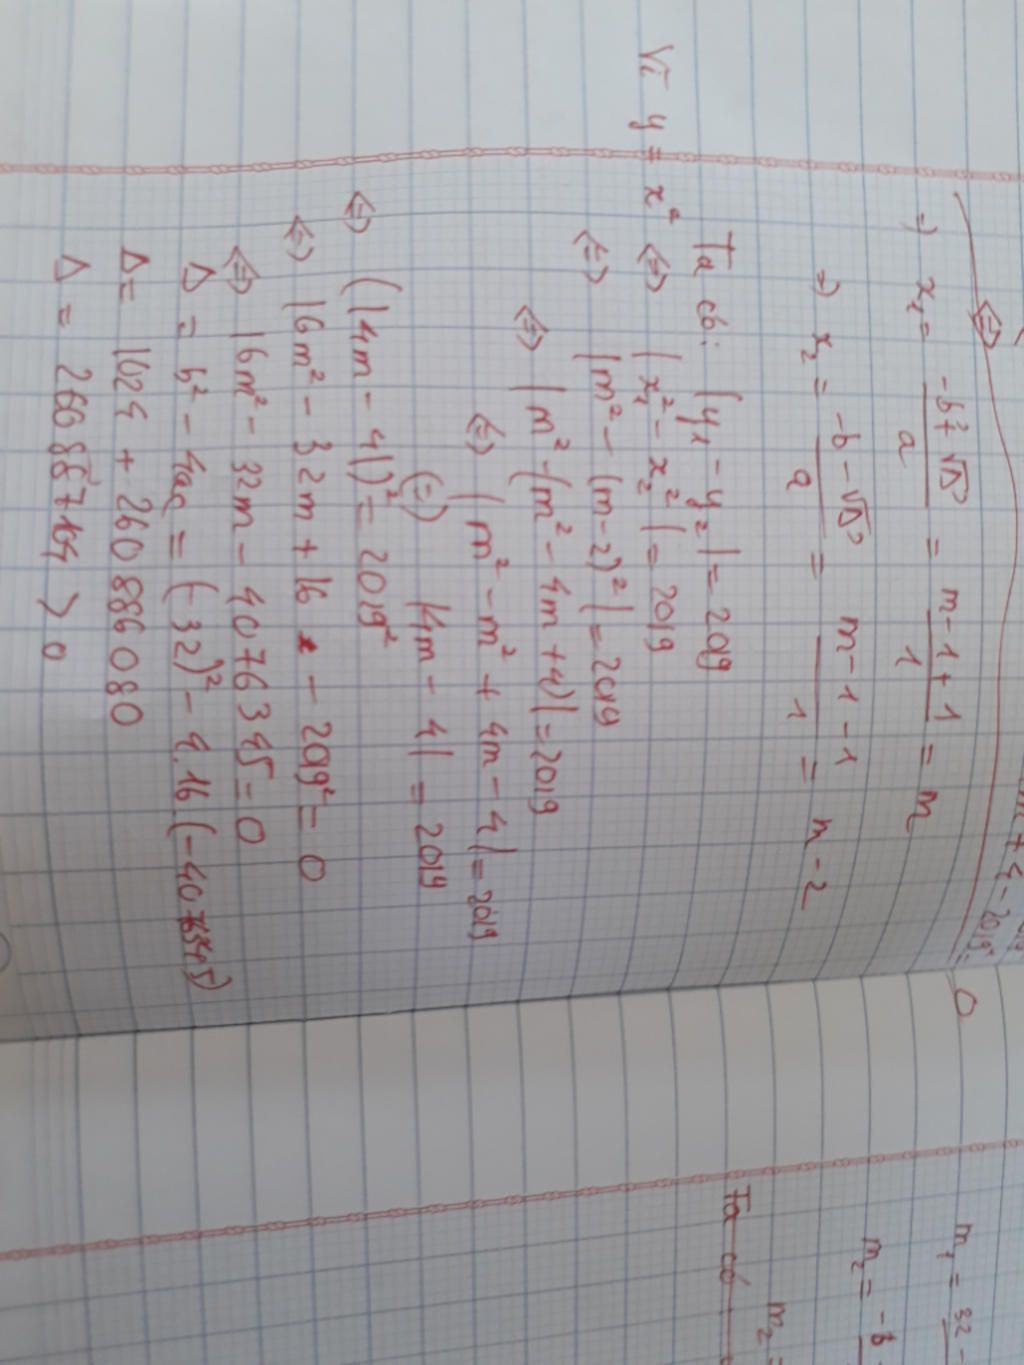 ⇔
= 0
⇒ x₁ = (-b' + √Δ')/a = (m - 1 + 1)/1 = m
⇒ x₂ = (-b - √Δ')/a = (m - 1 - 1)/1 = m - 2
Ta có: |y₁ - y₂| = 2019
Vì y = x² ⇔ |x₁² - x₂²| = 2019
⇔ |m² - (m-2)²| = 2019
⇔ |m² - (m² - 4m + 4)| = 2019
⇔ |m² - m² + 4m - 4| = 2019
⇔ |4m - 4| = 2019
⇔ (|4m - 4|)² = 2019²
⇔ 16m² - 32m + 16 - 2019² = 0
⇔ 16m² - 32m - 4076345 = 0
Δ = b² - 4ac = (-32)² - 4.16 (-4076345)
Δ = 1024 + 260886080
Δ = 260887104 > 0
m₁ = 32 -
m₂ = -b
m₂ =
Ta có